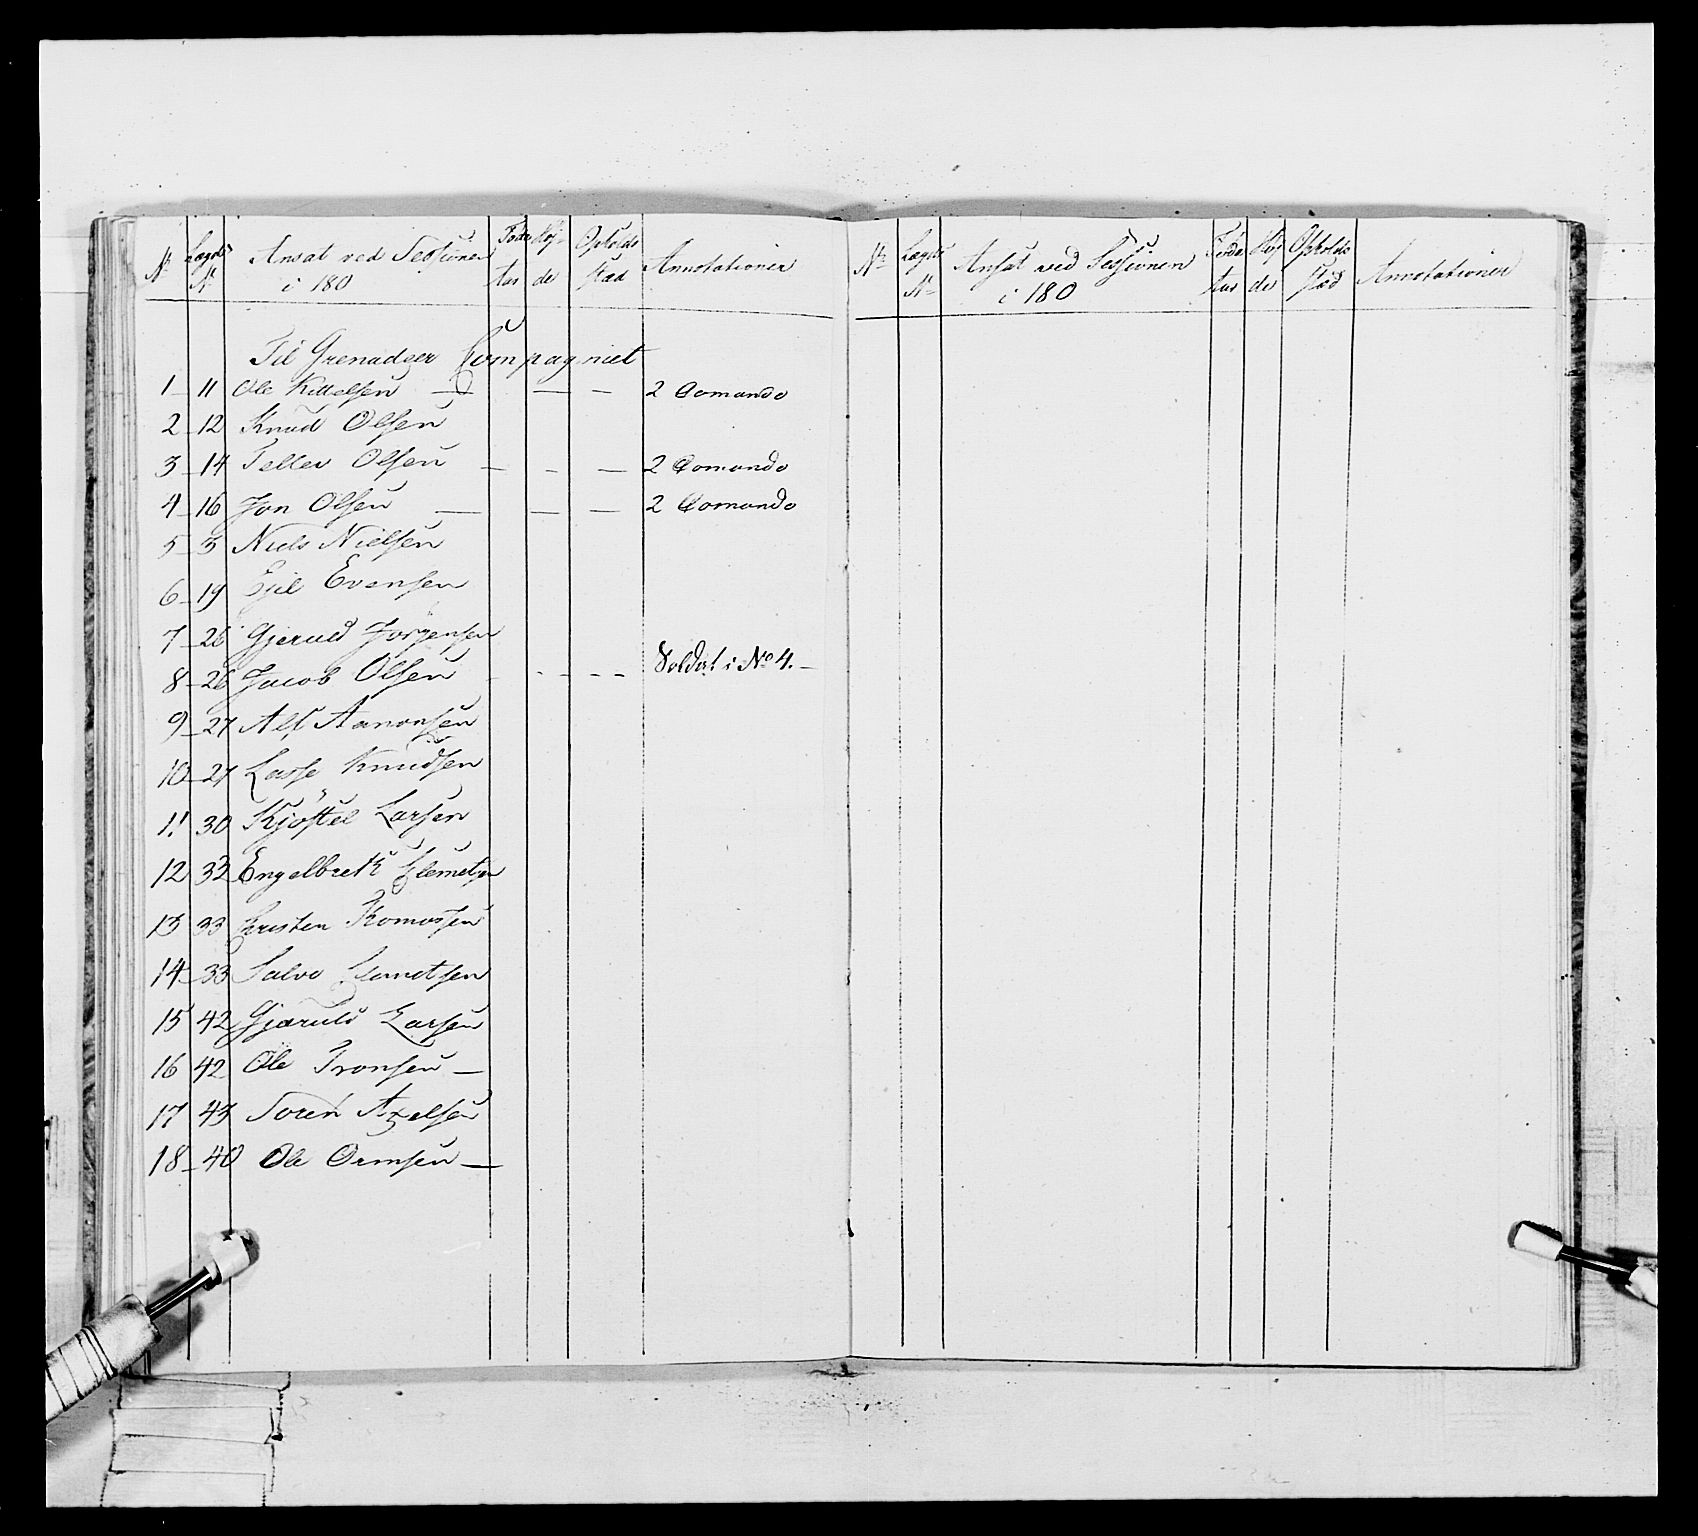 No Lægds No Ansat ved Sessionen i 180 Føde Aar Høide Opholds stæd Annotationer
Til Grenadeer Compagniet
1 11 Ole Kittelsen — — — 2 Comando
2 12 Knud Olsen
3 14 Tellev Olsen — - — 2 Comando
4 16 Jon Olsen — — — 2 Comando
5 3 Niels Nielsen
6 19 Ejel Evensen
7 26 Gjeruld Jørgensen
8 26 Jacob Olsen - - - - Soldat i No 4. —
9 27 Alf Aanonsen
10 27 Lasse Knudsen
11 30 Kjøstel Larsen
12 32 Engelbreth Clemetsen
13 33 Christen Thomassen
14 33 Salve Clemetsen
15 42 Gjæruld Larsen
16 42 Ole Tronsen —
17 43 Soren Axelsen
18 40 Ole Ormsen —
No Lægds No Ansat ved Sessionen i 180 Føde Aar Høide Opholds stæd Annotationer